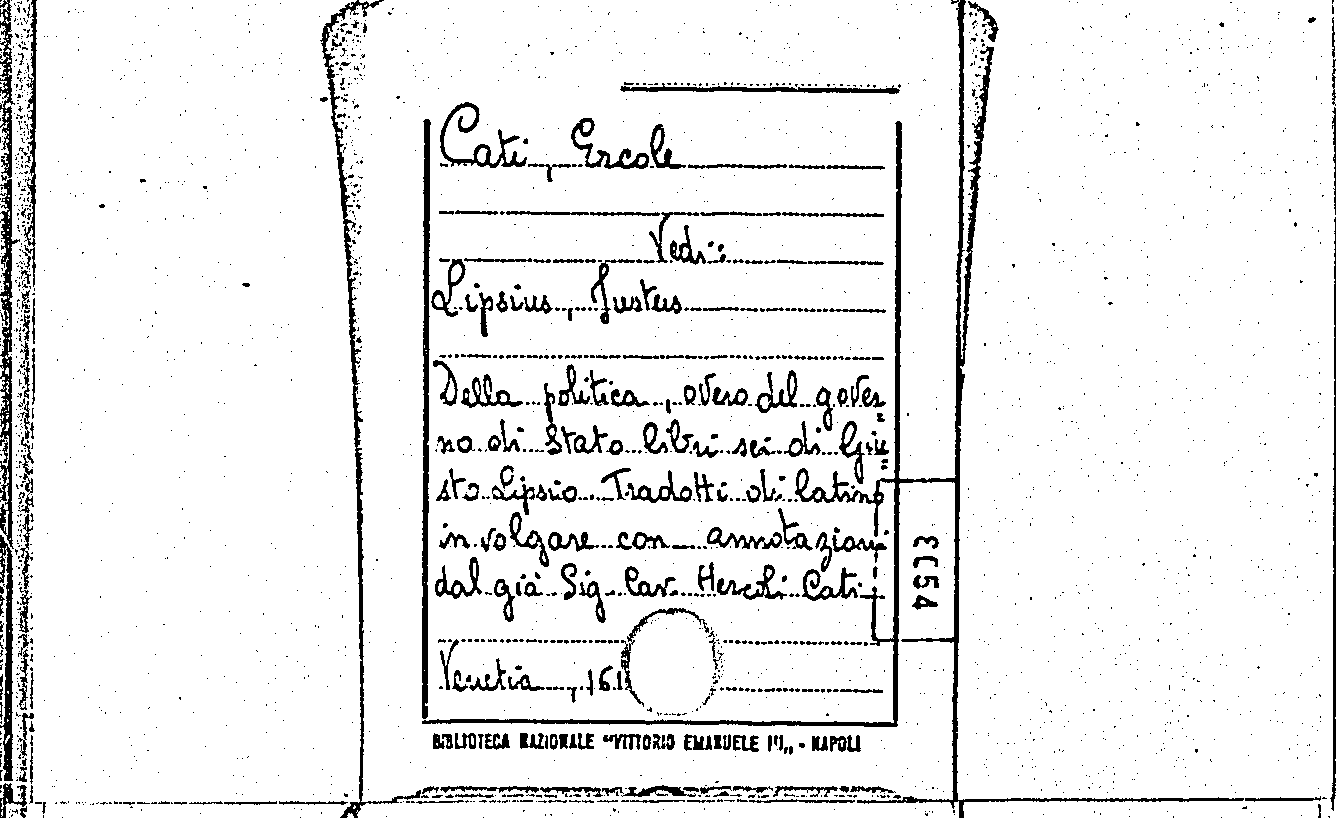 Cati, Ercole
Vedi:
Lipsius, Justus
Della politica, overo del gover=
no di Stato libri sei di Giu=
sto Lipsio Tradotti di latino
in volgare con annotazioni
dal già Sig. Cav. Hercole Cati
Venetia, 161
BIBLIOTECA NAZIONALE "VITTORIO EMANUELE III" - NAPOLI